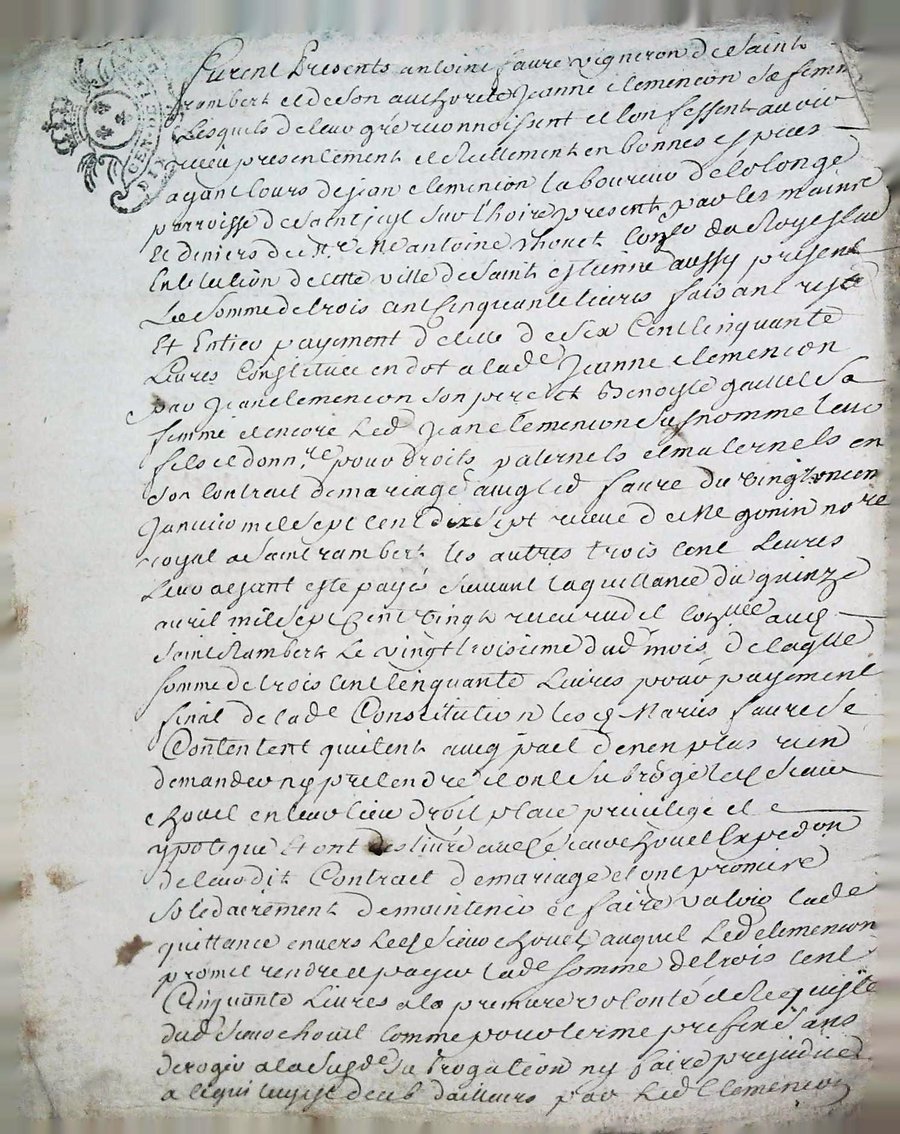 GEN. DE LION
furent Presents antoine faure vigneron de Saint
rambert et de son authorité Jeanne clemencon Sa femme
Lesquels de leur gré reconnoissent et confessent avoir
receu presentement et reellement en bonnes especes
ayant Cours de jean clemencon laboureur de
parroisse de Saint just Sur Lhoire present par les mains
Et deniers de Mr Me antoine chouet du Roy
En Election de cette ville de Saint estienne aussy present
La Somme de trois cent Cinquante livres faisant reste
Et Entier payement de celle de Six Cent Cinquante
Livres Constituée en dot a lade Jeanne clemencon
par Jean clemencon Son pere et Benoiste Sa
femme et encore Led Jean clemencon Susnommé leur
fils et donnre pour droits paternels et maternels en
Son Contrait de mariage avec led faure du vingt
Janvier mil Sept Cent dix Sept receu de Me gonin nore
royal a Saint rambert les autres trois Cent Livres
Leur ayant esté payés Suivant la quittance du quinze
avril mil Sept Cent vingt receu dud avec
Saint Rambert Le vingt troisieme dud mois, de laqlle
Somme de trois Cent Cinquante Livres pour payement
final de lade Constitution lesds Mariés faure Se
Contentent quitent avec pact de nen plus rien
demander ny pretendre et ont Subrogé led Sieur
chouet en leur lieu droit place privilege et
ypotique Et ont deslivré aud Sieur chouet Expedon
de leur dit Contrait de mariage et ont promis
Solidairement de maintenir et faire valoir lade
quittance envers Led Sieur chouet auquel Led clemencon
promet rendre et payer lade Somme de trois Cent
Cinquante Livres a la premiere volonté et Requiste
dud Sieur chouet Comme pour terme prefiné Sans
deroger a la Susde Subrogation ny faire prejudice
a ce qui luy est deub dailleurs par Led Clemencon